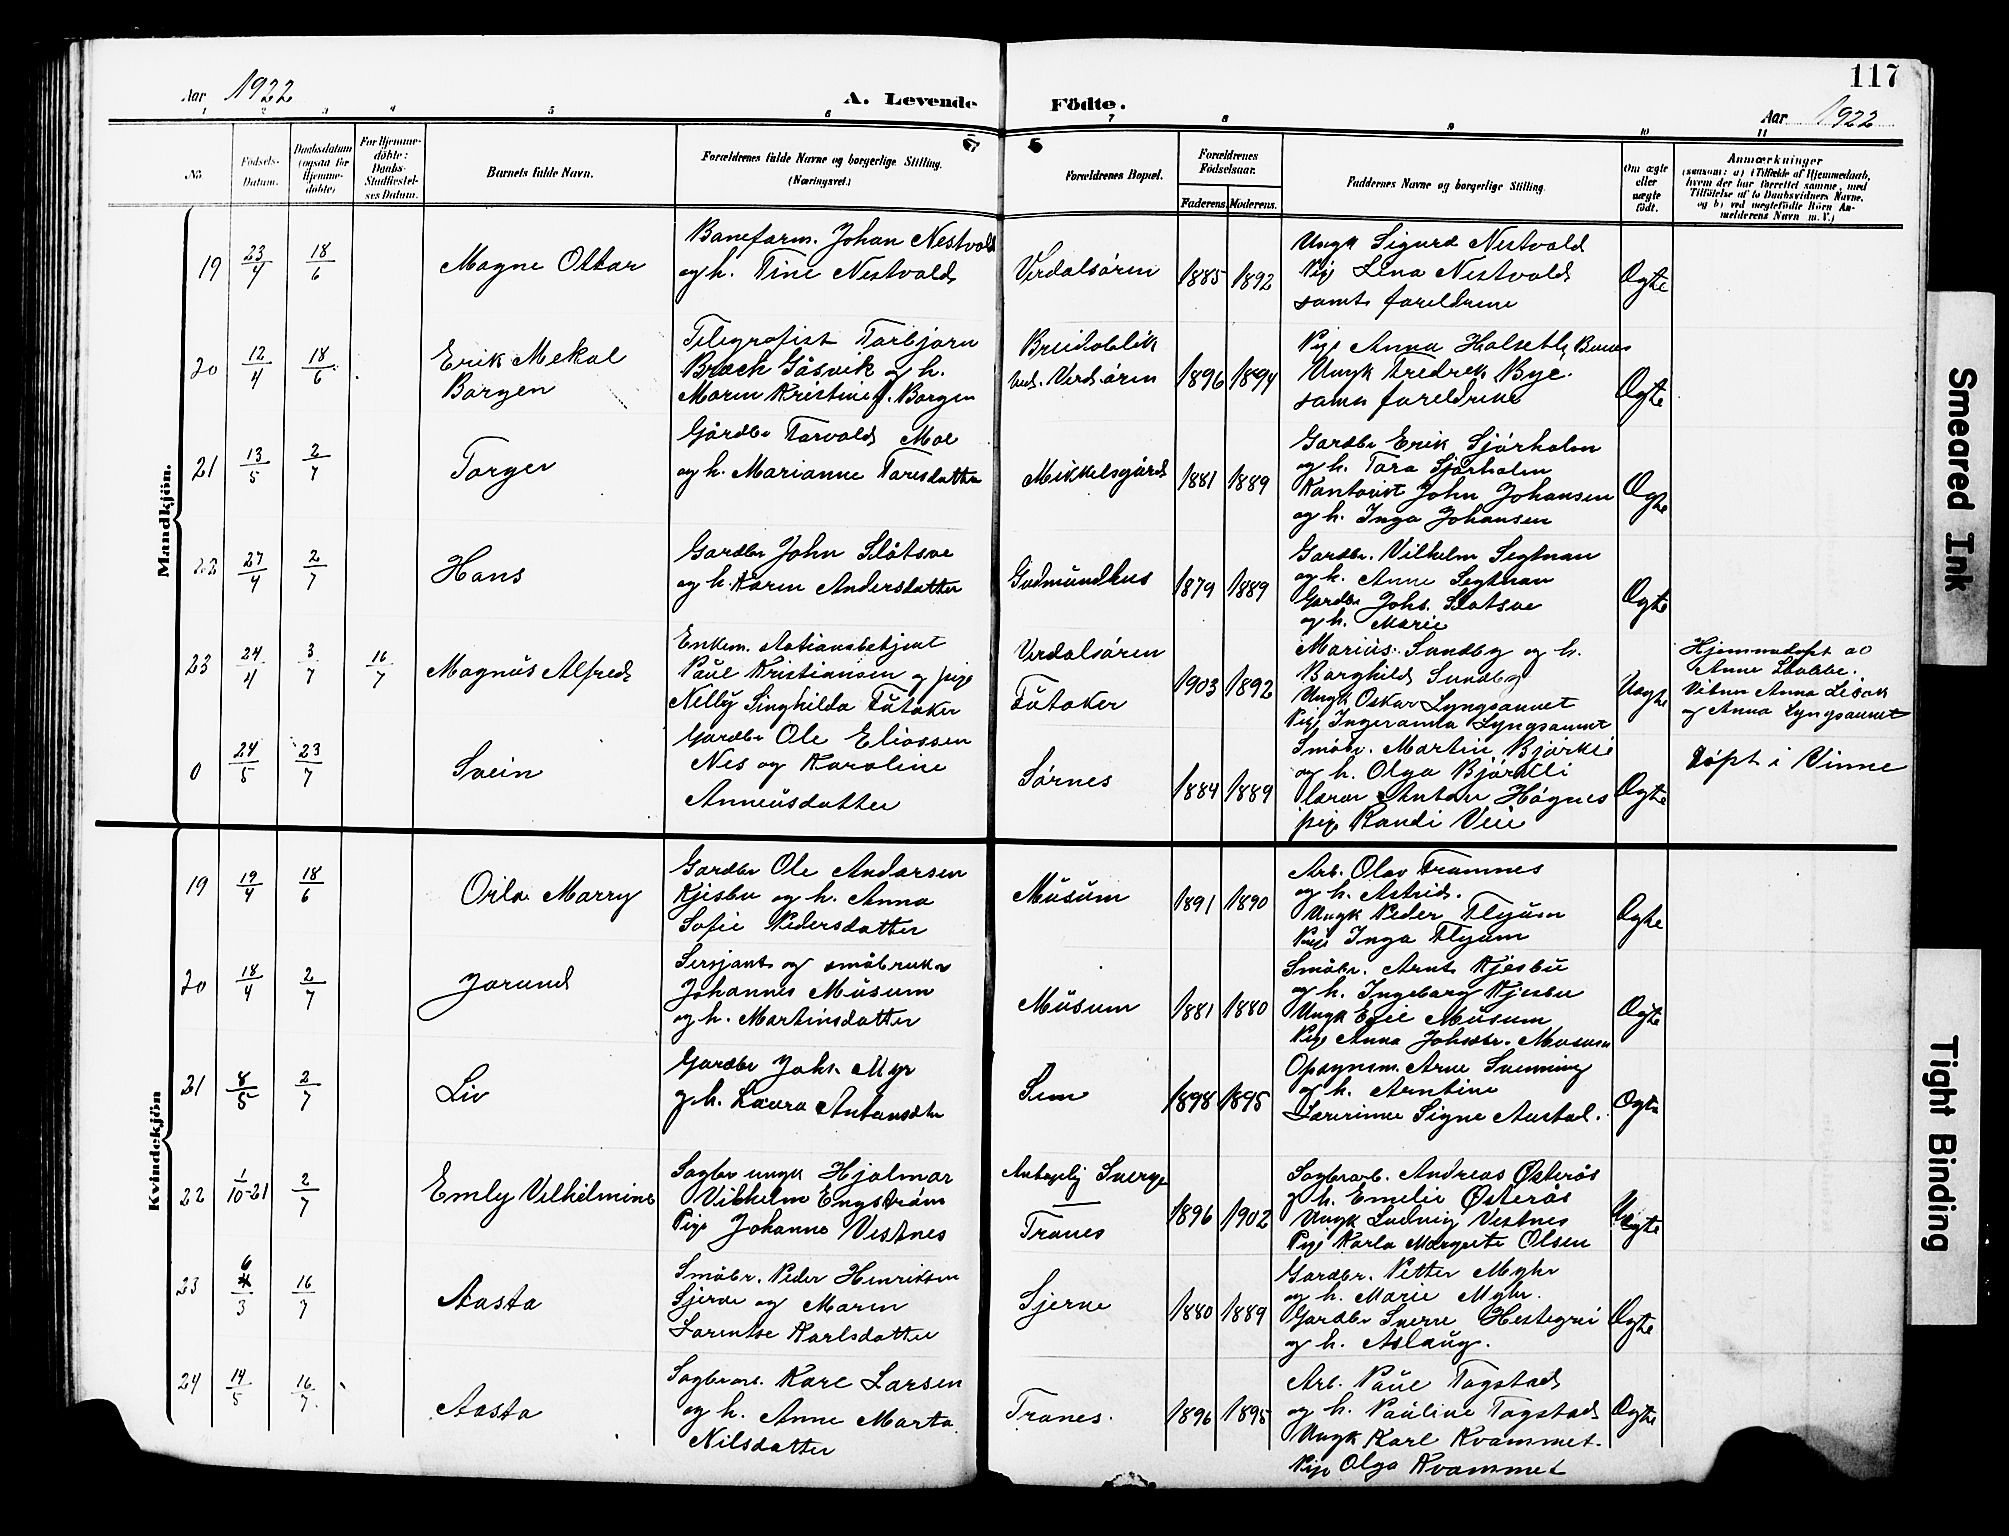 117
Aar 1922
A. Levende Födte.
Aar 1922
1 2 3 4 5 6 7 8 9 10 11
No.
Födsels-
Datum.
Daabsdatum
(ogsaa for
Hjemme-
döbte)
For Hjemme-
döbte:
Daabs-
Stadfæstel-
ses Datum.
Barnets fulde Navn.
Forældrenes fulde Navne og borgerlige Stilling.
(Næringsvei.)
Forældrenes Bopæl.
Forældrenes
Födselsaar.
Faderens. Moderens.
Faddernes Navne og borgerlige Stilling.
Om ægte
eller
uægte
födt.
Anmærkninger
(saasom: a) i Tilfælde af Hjemmedaab,
hvem der har forrettet samme, med
Tilföielse af to Daabsvidners Navne,
og b) ved uægtefödte Börn An-
melderens Navn m. V.)
Mandkjön.
19 23/4 18/6 Magne Ottar
Baneform. Johan Nestvold
og h. Tine Nestvold
Verdalsören
1885 1892
Ungk Sigurd Nestvold
Pige Lina Nestvold
samt foreldrene
Ægte
20 12/4 18/6 Erik Mekal
Borgen
Telegrafist Torbjørn
Brock Gåsvik og h.
Maren Kristine f. Borgen
Breidablik
ved. Verdsören
1896 1894
Pige Anna Holseth
Ungk Fredrek Bye
samt foreldrene
Ægte
21 13/5 2/7 Torger
Gårdbr Torvald Moe
og h. Marianne Toresdatter
Mikkelsgård
1881 1889
Gardbr Erik Sjörholm
og h. Tora Sjörholm
Kontorist John Johansen
og h. Inga Johansen
Ægte
22 27/4 2/7 Hans
Gardbr John Slåtsve
og h. Karen Andersdatter
Gudmundhus
1879 1889
Gardbr. Vilhelm Segtnan
og h. Anne Segtnan
Gardbr Johs. Slotsve
og h. Marie
Ægte
23 24/4 3/7 16/7 Magnus Alfred
Enkem.
Paul Kristiansen og pige
Nelly Singhilda Tutoker
Verdalsören
Tutoker
1903 1892
Marius Sundby og h.
Borghild Sundby
Ungk Oskar Lyngsaunet
Pige Ingeranna Lyngsaunet
Uægte
Hjemmedöpt av
Anne Stubbe.
Vitner Anna
og Anna Lyngsaunet
0 24/5 23/7 Svein
Gardbr Ole Eliassen
Nes og Karoline
Anneusdatter
Sörnes
1884 1889
Småbr. Martin Bjørkli
og h. Olga Bjørkli
lærer Anton Högnes
pige Randi Veie
Ægte
Döpt i Vinne
Kvindekjön
19 19/4 18/6 Orla Marry
Gardbr Ole Andersen
Kjesbu og h. Anna
Sofie Pedersdatter
Musum
1891 1890
Arb. Olav Tromnes
og h. Astrid.
Ungk Peder Flyum
Pige Inga Flyum
Ægte
20 18/4 2/7 Jorund
Sersjant og småbruker
Johannes Musum
og h. Martinsdatter
Musum
1881 1880
Småbr. Arnt Kjesbu
og h. Ingeborg Kjesbu
Ungk Egil Musum
Pige Anna Johsdr. Musum
Ægte
21 8/5 2/7 Liv
Gardbr Johs. Myr
og h. Laura Antonsdtr
Sem
1898 1895
Opsynsm. Arne Svenning
og h. Arntine
Lærerinne Signe Austad.
Ægte
22 1/10-21 2/7 Emly Vilhelmine
Sagbr ungk Hjalmar
Vilhelm Engström
Pige Johanna Vestnes
Antagelig Sverge
Trones
1896 1902
Sagbrarb. Andreas Österås
og h. Emelie Österås
Ungk Ludvig Vestnes
Pige Karla Margrete Olsen
Uægte
23 6/3 16/7 Aasta
Småbr. Peder Henriksen
Sjerve og Maren
Lorentse Karlsdatter
Sjerve
1880 1889
Gardbr. Petter Myhr
og h. Marie Myhr.
Gardbr Sverre Hestegrei
og h. Aslaug.
Ægte
24 14/5 16/7 Aasta
Sagbrarb. Karl Larsen
og h. Anne Marta
Nilsdatter
Trones.
1896 1895
Arb. Paul Togstad
og h. Pauline Togstad
Ungk Karl Kvammet.
Pige Olga Kvammet
Ægte
Smeared Ink
Tight Binding